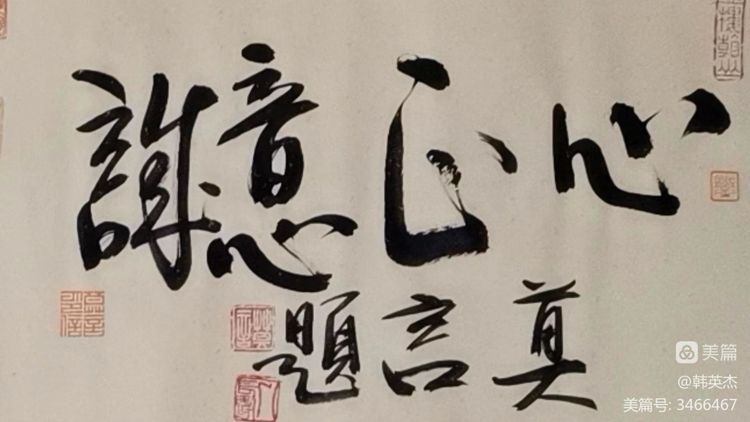 心正意誠
莫言題
美篇
@韩英杰
美篇号: 3466467